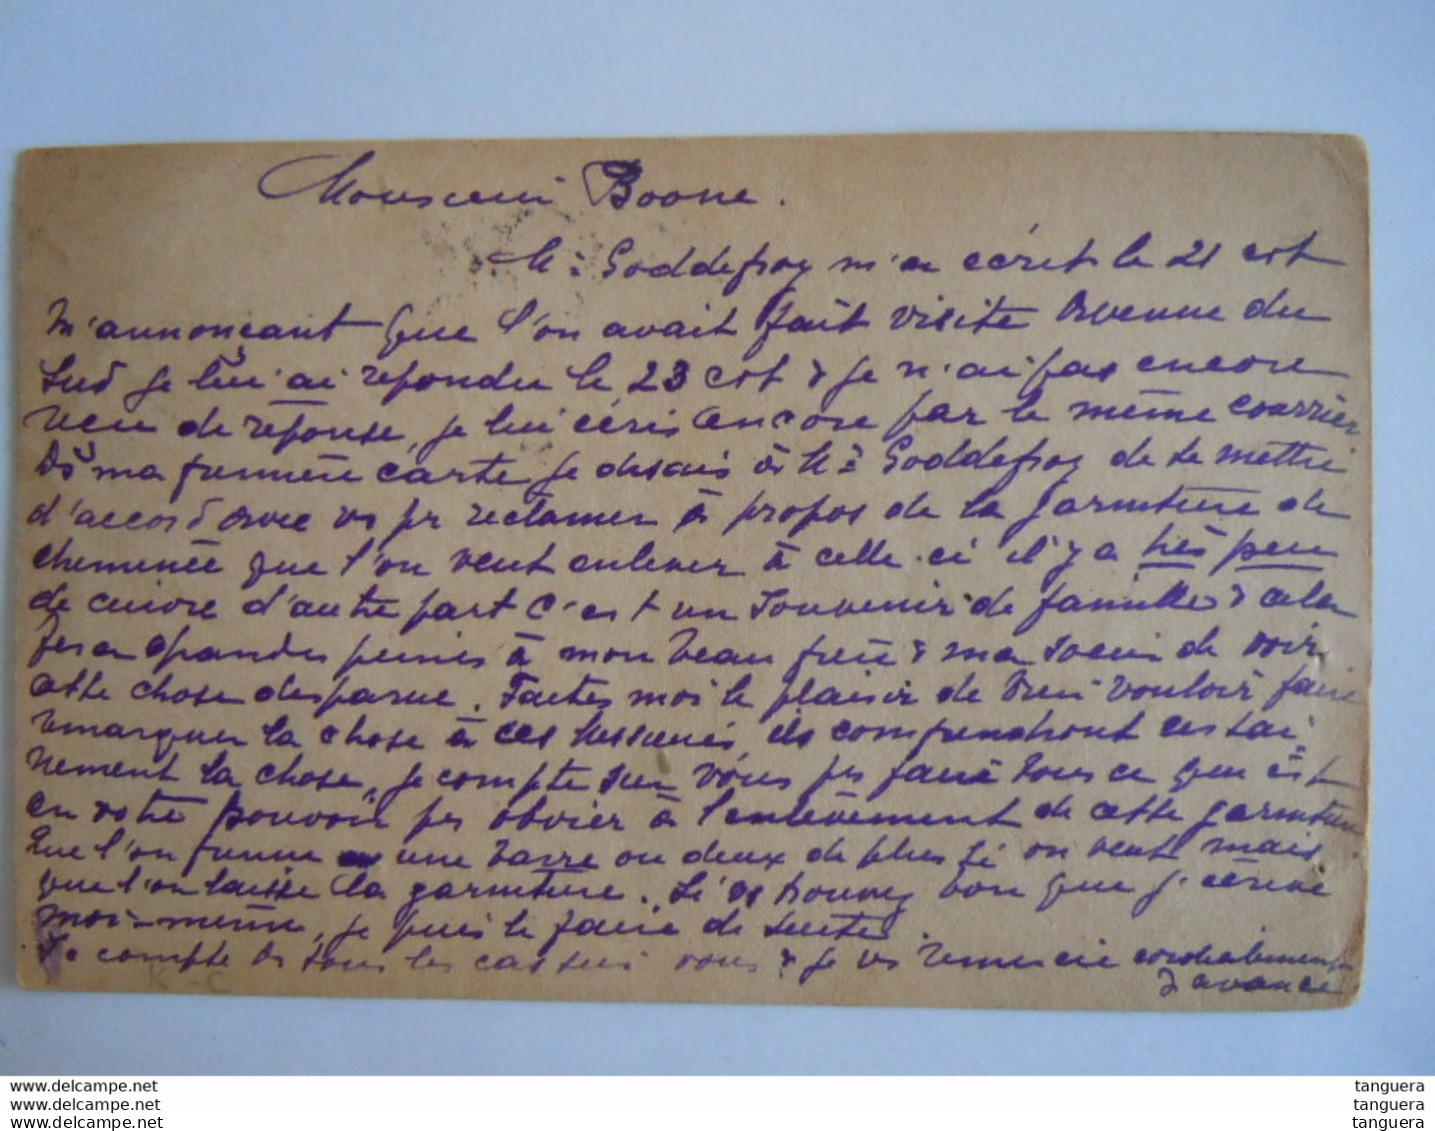 Monsieur Boone.
Mr Goddefroy m'a écrit le 21 cst
m'annonçant que l'on avait fait visite Avenue du
Sud je lui ai répondu le 23 cst & je n'ai pas encore
reçu de réponse, je lui écris encore par le même courrier
Ds ma première carte je disais à Mr Goddefroy de se mettre
d'accord avec vs pr réclamer à propos de la garniture de
cheminée que l'on veut enlever à celle-ci il y a très peu
de cuivre d'autre part c'est un souvenir de famille & cela
fera grandes peines à mon beau frère & ma soeur de voir
cette chose disparue. Faites moi le plaisir de bien vouloir faire
remarquer la chose à ces Messieurs, ils comprendront certai
nement la chose, je compte sur vous pr faire tous ce que est
en votre pouvoir pr obvier à l'enlèvement de cette garniture
Que l'on prenne une barre ou deux de plus si on veut mais
que l'on laisse la garniture. Si vs trouvez bon que j'écrive
moi-même, je puis le faire de suite.
Je compte ds tous les cas sur vous & je vs remercie cordialement
d'avance
K-C
www.delcampe.net
tanguera
www.delcampe.net
tanguera
www.delcampe.net
tanguera